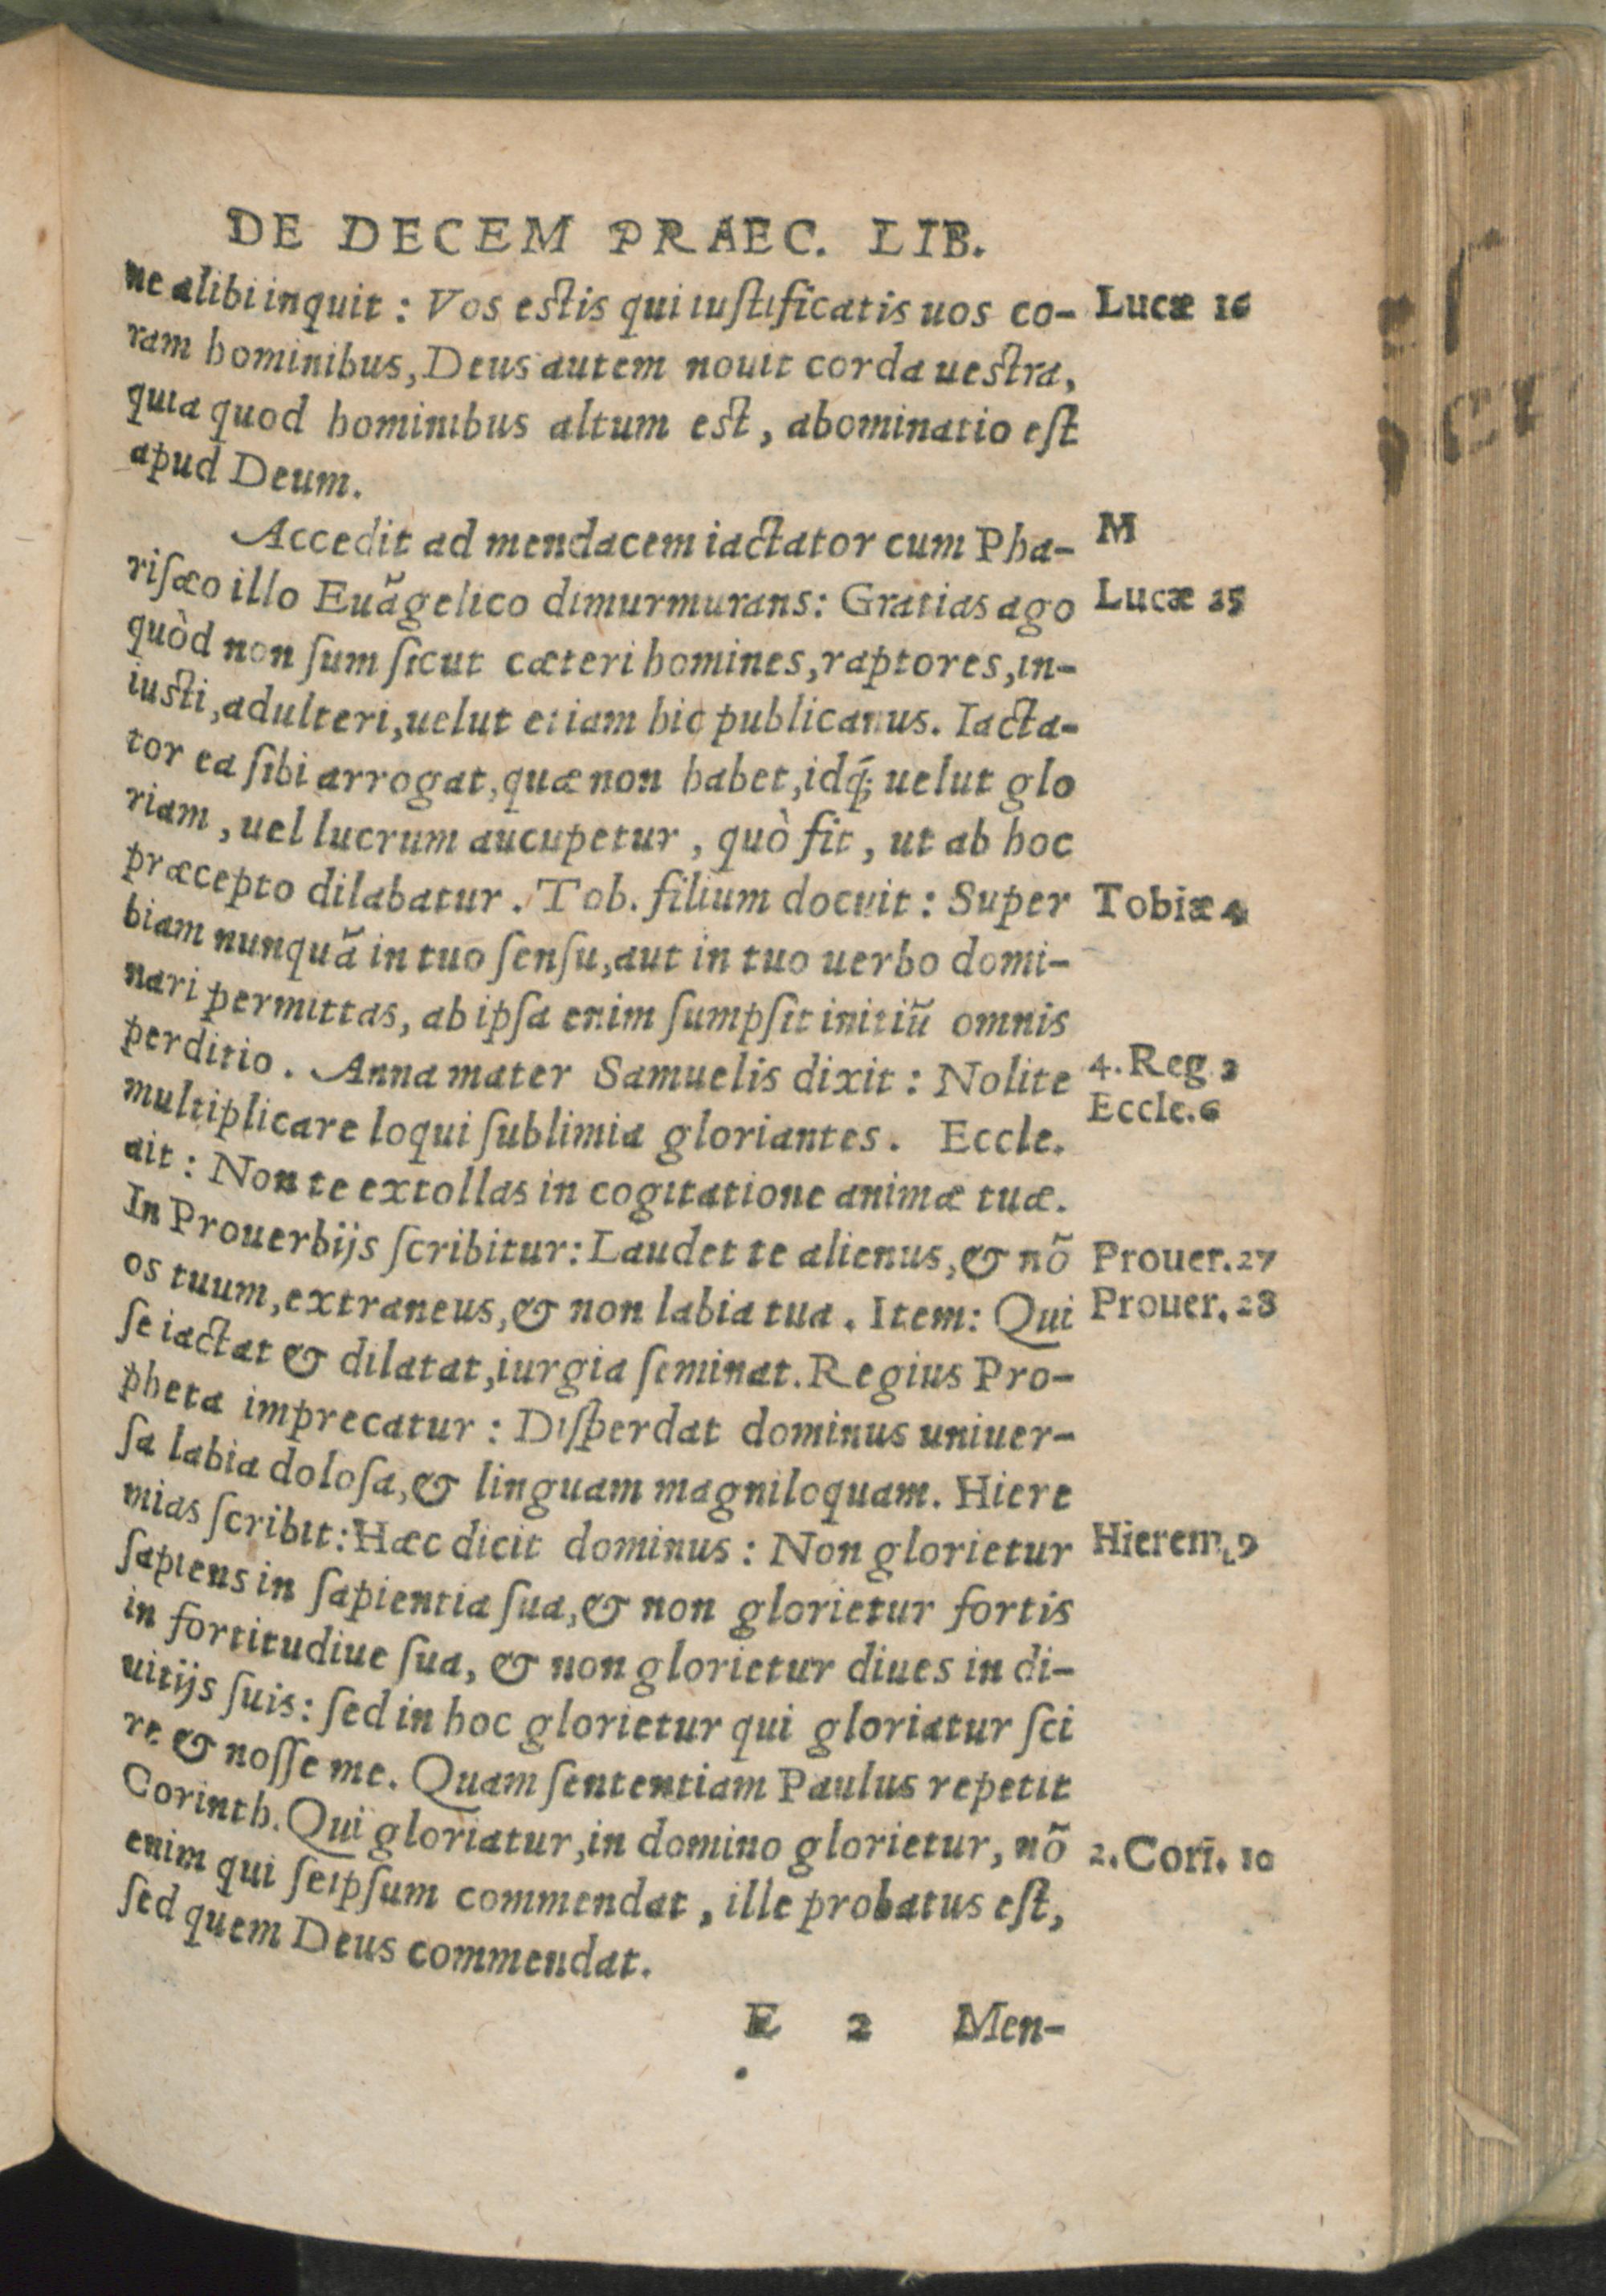 DE DECEM PRAEC. LIB.
ne alibi inquit : Vos estis qui iustificatis uos co-
Lucæ 16
ram hominibus, Deus autem nouit corda uestra,
quia quod hominibus altum est, abominatio est
apud Deum.
Accedit ad mendacem iactator cum Pha-
M
risæo illo Euãgelico dimurmurans: Gratias ago
Lucæ
quòd non sum sicut cæteri homines, raptores, in-
iusti, adulteri, uelut etiam hic publicanus. Iacta-
tor ea sibi arrogat, quæ non habet, idq́; uelut glo
riam, uel lucrum aucupetur, quò fit, ut ab hoc
præcepto dilabatur. Tob. filium docuit : Super
Tobiæ 4
biam nunquã in tuo sensu, aut in tuo uerbo domi-
nari permittas, ab ipsa enim sumpsit initiũ omnis
perditio. Anna mater Samuelis dixit : Nolite
4. Reg. 2
multiplicare loqui sublimia gloriantes. Eccle.
Eccle. 6
ait : Non te extollas in cogitatione animæ tuæ.
In Prouerbijs scribitur: Laudet te alienus, & nõ
Prouer. 27
os tuum, extraneus, & non labia tua. Item: Qui
Prouer. 28
se iactat & dilatat, iurgia seminat. Regius Pro-
pheta imprecatur : Disperdat dominus uniuer-
sa labia dolosa, & linguam magniloquam. Hiere
mias scribit: Hæc dicit dominus : Non glorietur
Hierem. 9
sapiens in sapientia sua, & non glorietur fortis
in fortitudiue sua, & non glorietur diues in di-
uitijs suis: sed in hoc glorietur qui gloriatur sci
re & nosse me. Quam sententiam Paulus repetit
Corinth. Qui gloriatur, in domino glorietur, nõ
2. Cori. 10
enim qui seipsum commendat, ille probatus est,
sed quem Deus commendat.
E 2 Men-